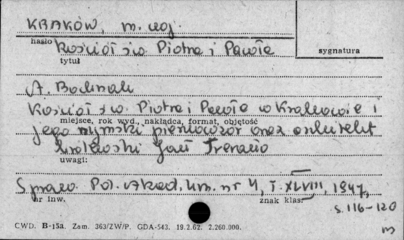 KRAKÓW, m. woj.
hasło Kościół św. Piotra i Pawła
tytuł
sygnatura
A. Bochnak
Kościół św. Piotra i Pawła w Krakowie i
miejsce, rok wyd., nakładca, format, objętość
jego rzymski pierwowzór oraz architekt
królewski Jan Trevano
uwagi:
Spraw. Pol. Akad. Um. nr 4, T. XLVIII, 1947,
nr inw. znak klas.
s. 116-120
CWD. B-15a. Zam. 363/ZW/P. GDA-542. 19.2.62. 2.260.000.
m